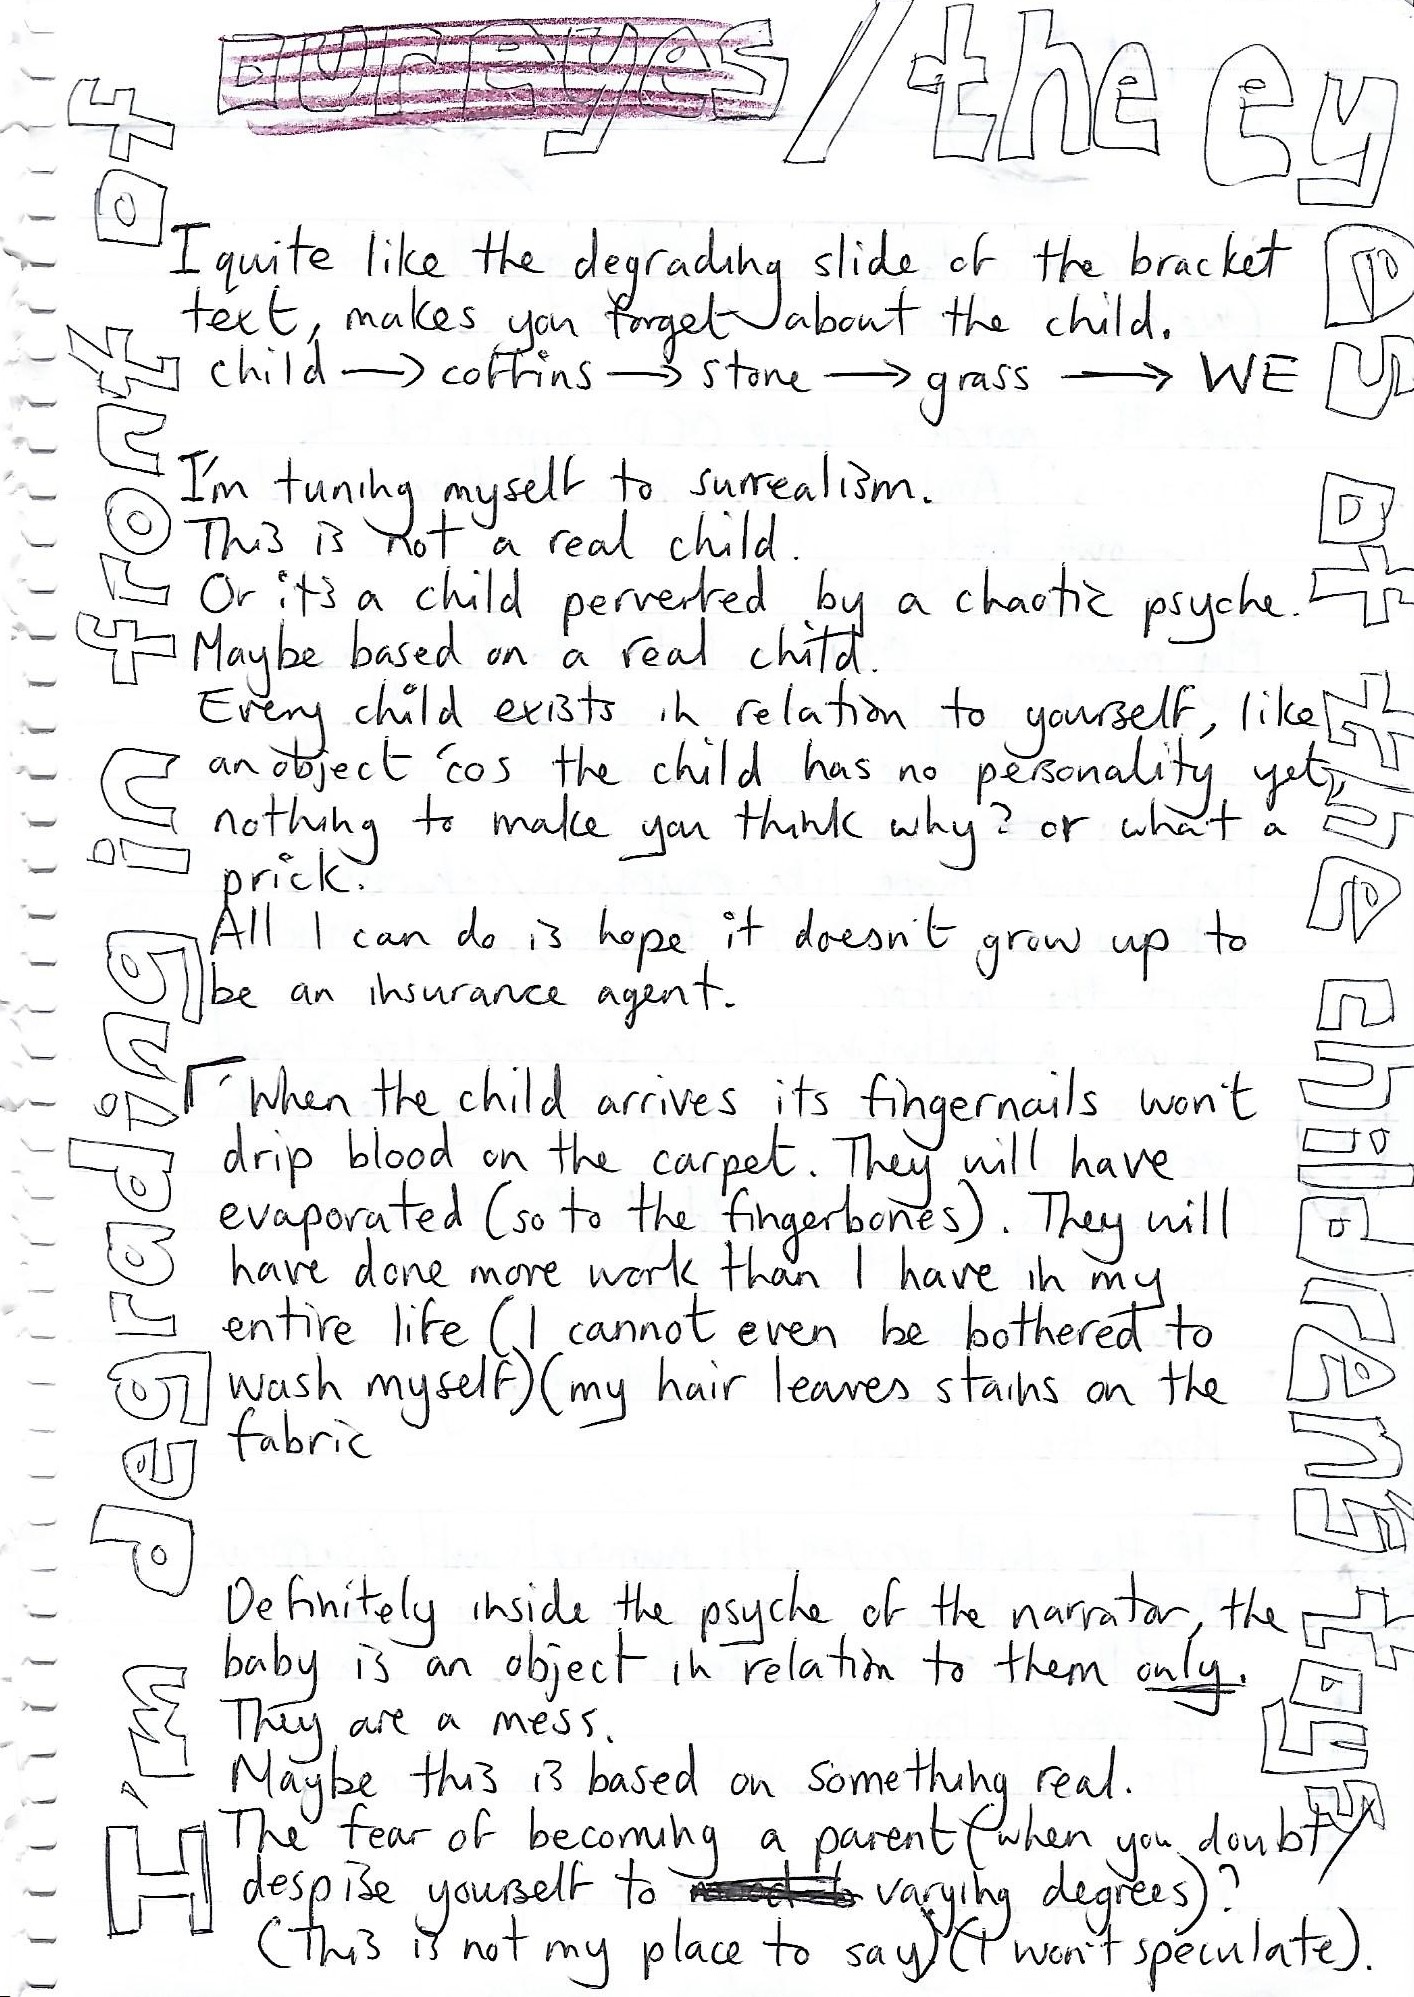 I'm degrading in front of
our eyes/the ey
es of the children's toys
I quite like the degrading slide of the bracket
text, makes you forget about the child.
child → coffins → stone → grass → WE
I'm tuning myself to surrealism.
This is not a real child.
Or it's a child perverted by a chaotic psyche.
Maybe based on a real child.
Every child exists in relation to yourself, like
an object 'cos the child has no personality yet,
nothing to make you think why? or what a
prick.
All I can do is hope it doesn't grow up to
be an insurance agent.
'When the child arrives its fingernails won't
drip blood on the carpet. They will have
evaporated (so to the fingerbones). They will
have done more work than I have in my
entire life (I cannot even be bothered to
wash myself)(my hair leaves stains on the
fabric
Definitely inside the psyche of the narrator, the
baby is an object in relation to them only.
They are a mess.
Maybe this is based on something real.
The fear of becoming a parent (when you doubt/
despise yourself to varying degrees)?
(This is not my place to say)(I won't speculate).